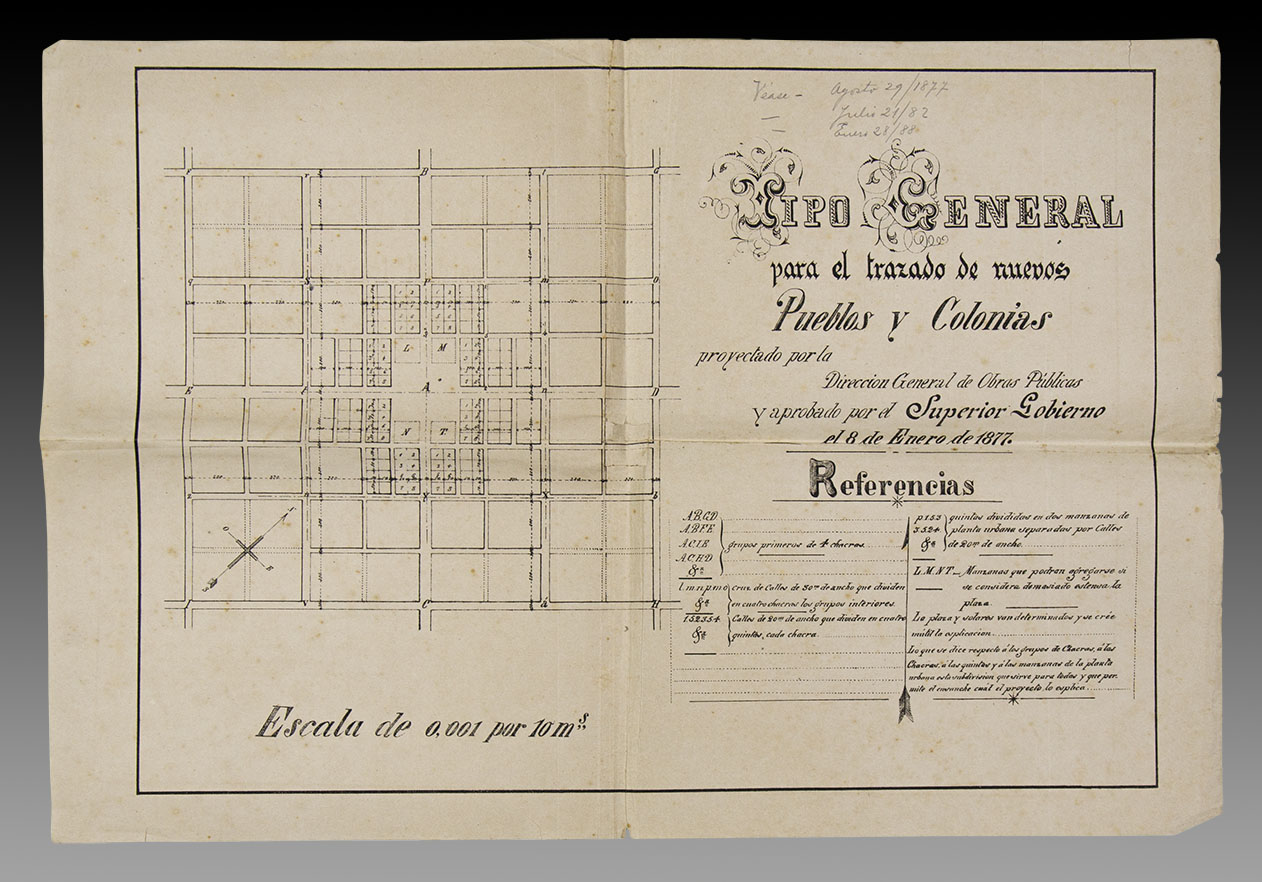 Véase - Agosto 29/1877
— Julio 21/82
— Enero 28/88
Tipo General
para el trazado de nuevos
Pueblos y Colonias
proyectado por la
Direccion General de Obras Públicas
y aprobado por el Superior Gobierno
el 8 de Enero de 1877.
Referencias
A.B.G.D.
A.B.F.E.
A.C.I.E. grupos primeros de 4 chacras.
A.C.H.D.
&ª
l m n p m o cruz de Calles de 30m de ancho que dividen
&ª en cuatro chacras los grupos interiores.
1 5 2 3 5 4 Calles de 20m de ancho que dividen en cuatro
&ª quintas, cada chacra.
p 1 5 3 quintas divididas en dos manzanas de
3.5.2.4 planta urbana separadas por Calles
&ª de 20m de ancho.
L.M.N.T._ Manzanas que podran agregarse si
se considera demasiado estensa la
plaza.
La plaza y solares van determinados y se crée
inútil la esplicacion.
Lo que se dice respecto á los grupos de Chacras, á las
Chacras, á las quintas y á las manzanas de la planta
urbana es la subdivision que sirve para todos y que per-
mite el ensanche cual el proyecto lo esplica.
L M
A
N T
Escala de 0,001 por 10 ms.